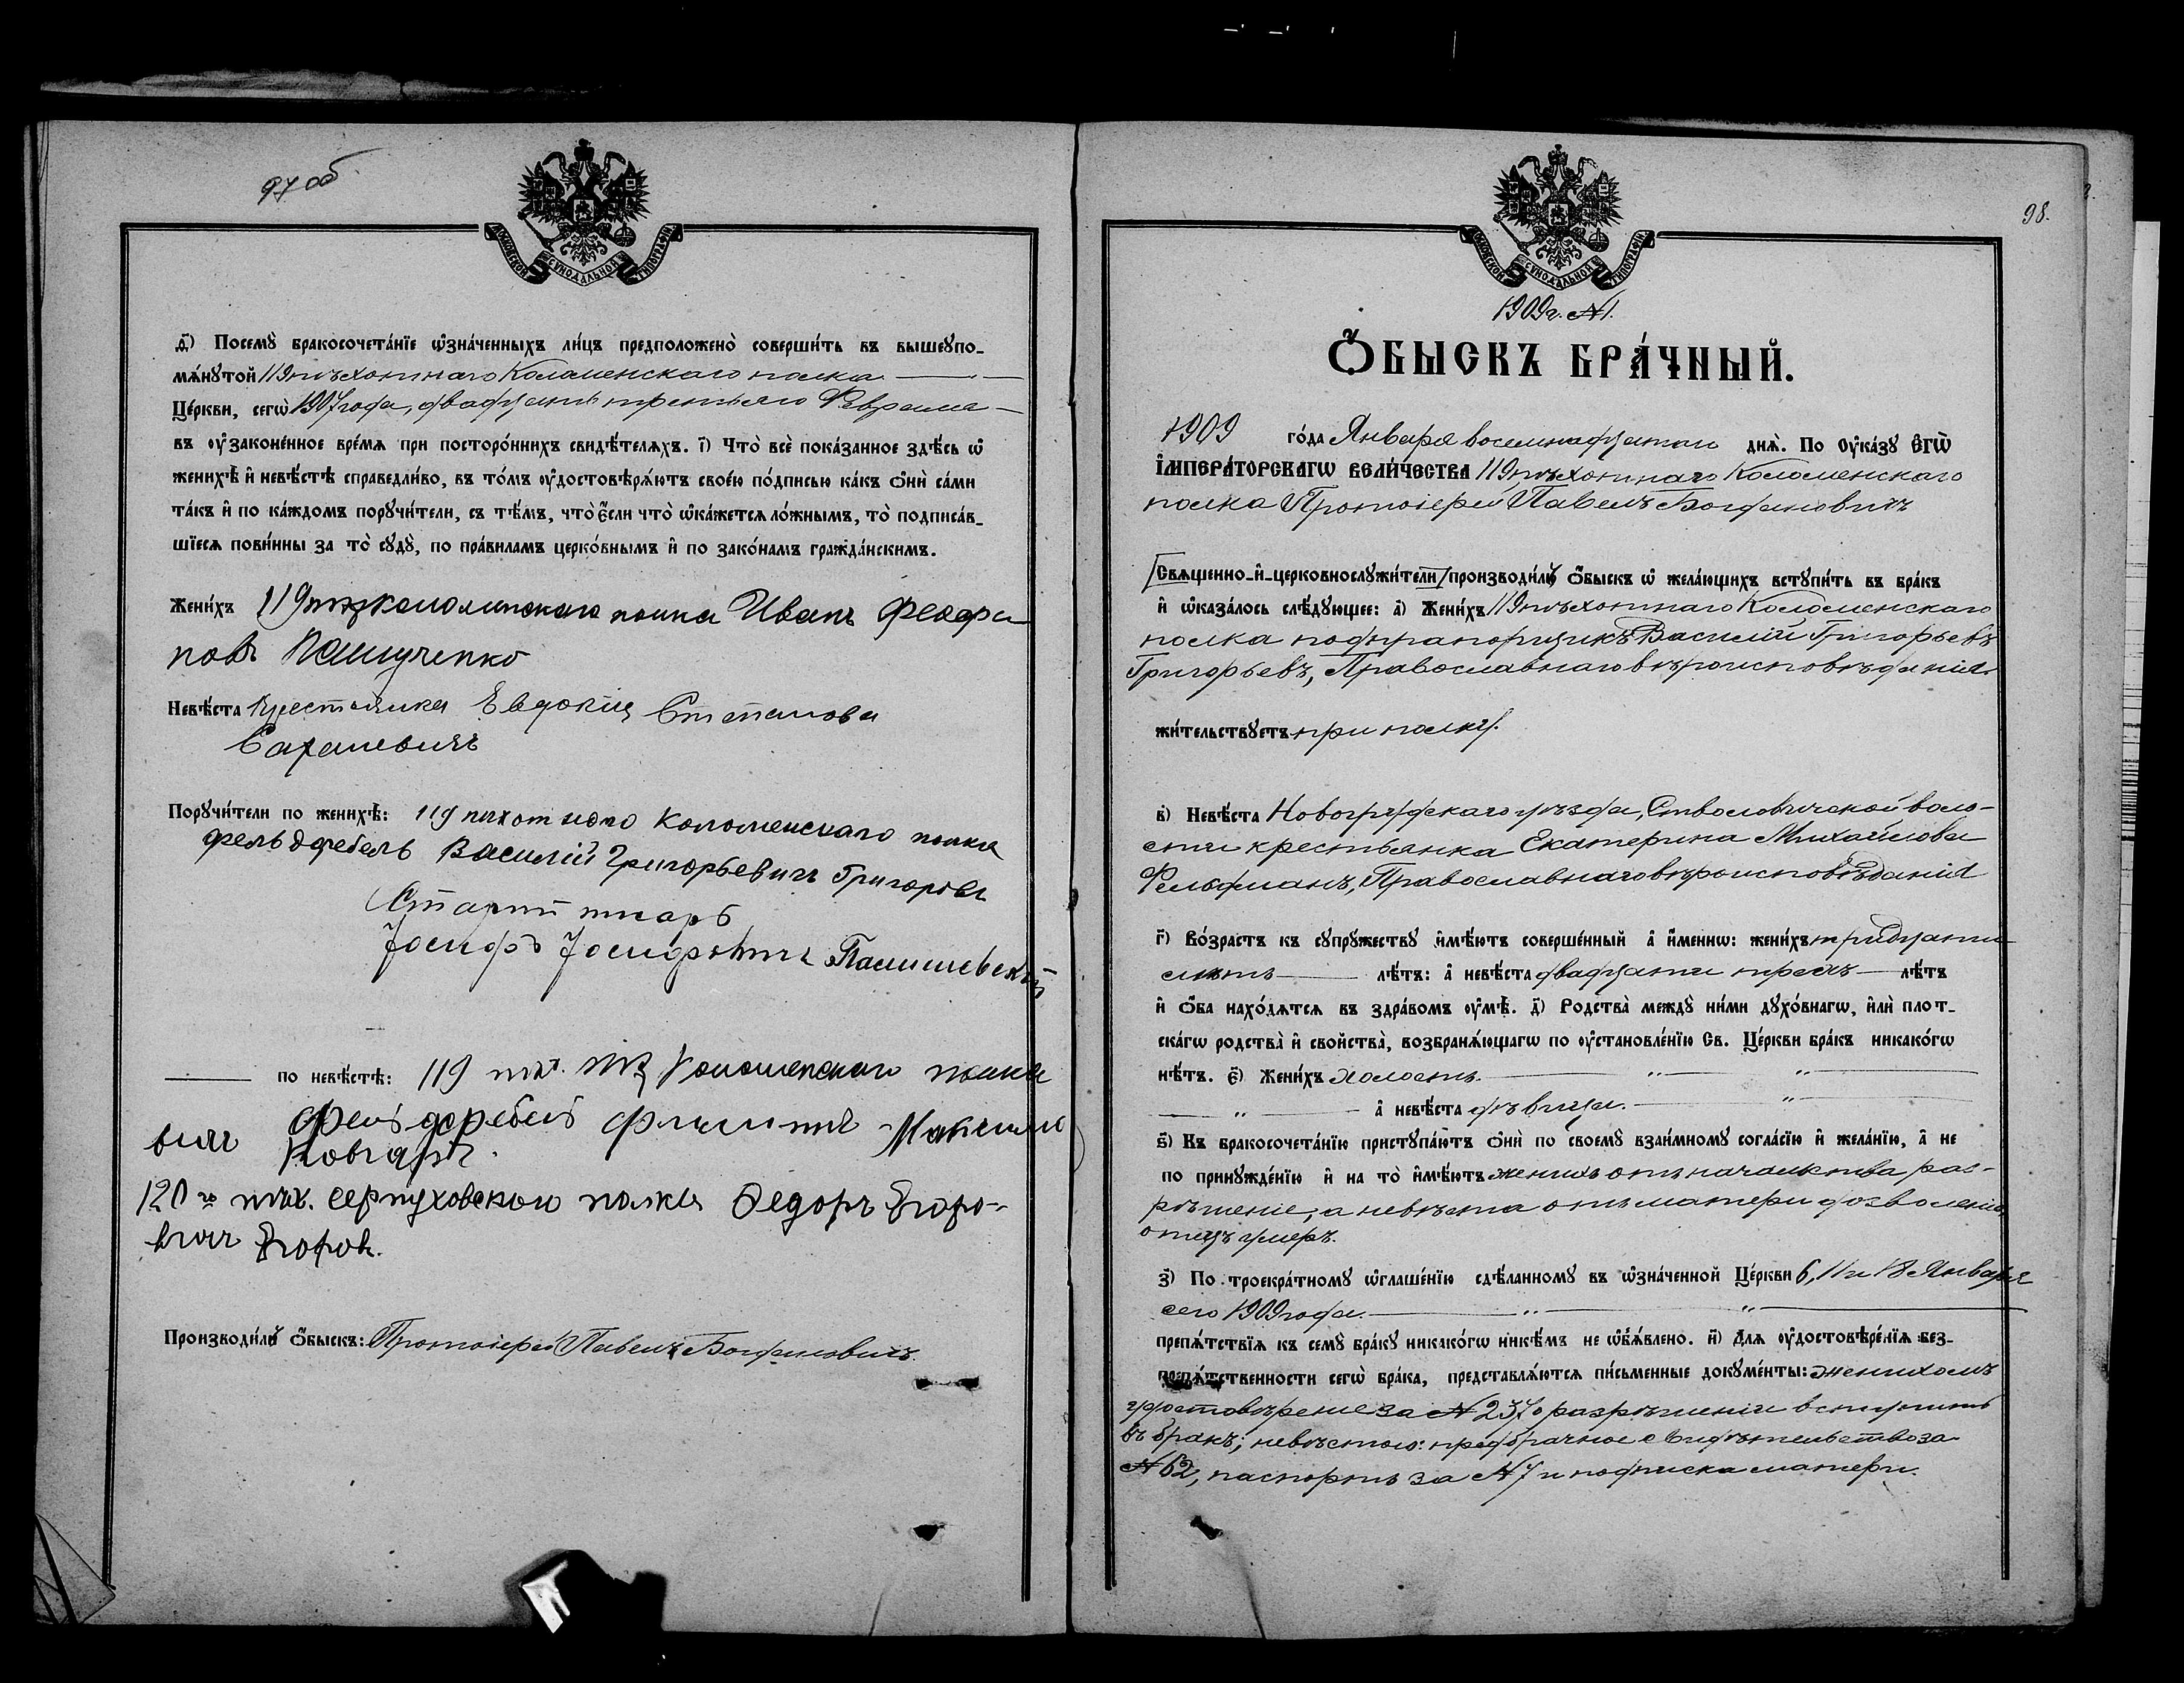 97 об
МОСКОВСКОЙ СУНОДАЛЬНОЙ ТИПОГРАФІИ
д҃) Посемꙋ̀ бракосочета́нїе ѡ҆зна́ченныхъ ли́цъ предположено̀ соверши́ть въ вышеꙋпо-
мѧ́нꙋтой 119 пѣхотнаго Коломенскаго полка
Це́ркви, сегѡ̀ 1907 года, двадцать третьяго Февраля
въ ᲂу҆законе́нное вре́мѧ при посторо́ннихъ свидѣ́телѧхъ. і҃) Что̀ всѐ пока́занное здѣ́сь ѡ҆
женихѣ̀ и҆ невѣ́стѣ справедли́во, въ то́мъ ᲂу҆достовѣрѧ́ютъ свое́ю по́дписью ка́къ ѻ҆нѝ са́ми
та́къ и҆ по ка́ждомъ порꙋчи́тели, съ тѣ́мъ, что̀ є҆́сли что̀ ѡ҆ка́жетсѧ ло́жнымъ, то̀ подписа́в-
шїесѧ пови́нны за то̀ сꙋдꙋ̀, по пра́виламъ церко́внымъ и҆ по зако́намъ гражда́нскимъ.
Жени́хъ 119 пѣх Коломенскаго полка Иванъ Феофа
новъ Пащученко
Невѣ́ста Крестьянка Евдокія Степанова
Саханевичъ
Порꙋчи́тели по женихѣ̀: 119 пѣхотного Коломенскаго полка
фельдфебель Василій Григорьевичъ Григорьевъ
Старш писарь
Іосифъ Іосифовичъ
по невѣ́стѣ: 119 пѣх. Коломенскаго полка
Фельдфебель Филиппъ Максимо
вичъ
120го пѣх. Серпуховскаго полка Федоръ Егоро-
вичъ Егоровъ.
Производи́лъ ѻ҆́быскъ: Протоіерей Павелъ Богдановичъ
98.
МОСКОВСКОЙ СУНОДАЛЬНОЙ ТИПОГРАФІИ
1909 г. №1.
Ѻ҆́БЫСКЪ БРА́ЧНЫЙ.
1909 го́да Января восемнадцатаго днѧ̀. По ᲂу҆ка́зꙋ Є҆ГѠ̀
И҆МПЕРА́ТОРСКАГѠ ВЕЛИ́ЧЕСТВА 119 пѣхотнаго Коломенскаго
полка Протоіерей Павелъ Богдановичъ
[Свѧщенно-и҆-церковнослꙋжи́тели] производи́лъ ѻ҆́быскъ ѡ҆ жела́ющихъ встꙋпи́ть въ бра́къ
и҆ ѡ҆каза́лось слѣ́дꙋющее: а҃) Жени́хъ 119 пѣхотнаго Коломенскаго
полка подпрапорщикъ Василій Григорьевъ
Григорьевъ, Православнаго вѣроисповѣданія
жи́тельствꙋетъ при полку.
в҃) Невѣ́ста Новогрудскаго уѣзда, Стволовичской воло-
сти крестьянка Екатерина Михайлова
Фельдманъ, Православнаго вѣроисповѣданія
г҃) Во́зрастъ къ сꙋпрꙋ́жествꙋ и҆мѣ́ютъ соверше́нный а҆ и҆́меннѡ: жени́хъ тридцати
лѣ́тъ: а҆ невѣ́ста двадцати трехъ лѣ́тъ
и҆ ѻ҆́ба нахо́дѧтсѧ въ здра́вомъ ᲂу҆мѣ̀. д҃) Родства̀ междꙋ̀ ни́ми дꙋхо́внагѡ, и҆лѝ плот-
ска́гѡ родства̀ и҆ свойства̀, возбранѧ́ющагѡ по ᲂу҆становле́нїю Св. Це́ркви бра́къ никако́гѡ
нѣ́тъ. є҃) Жени́хъ холостъ. „ „
„ а҆ невѣ́ста дѣвица. „
ѕ҃) Къ бракосочета́нїю пристꙋпа́ютъ ѻ҆нѝ по своемꙋ̀ взаи́мномꙋ согла́сїю и҆ жела́нїю, а҆ не
по принꙋжде́нїю и҆ на то̀ и҆мѣ́ютъ женихъ отъ начальства раз-
рѣшеніе, а невѣста отъ матери дозволеніе
отецъ умеръ.
з҃) По троекра́тномꙋ ѡ҆глаше́нїю сдѣ́ланномꙋ въ ѡ҆зна́ченной Це́ркви 6, 11 и 18 Января
сего 1909 года. „ „
препѧ́тствїѧ къ семꙋ̀ бра́кꙋ никако́гѡ нике́мъ не ѡ҆б̾ѧ́влено. и҃) Для ᲂу҆достовѣре́нїѧ без-
препѧ́тственности сегѡ̀ бра́ка, представлѧ́ютсѧ пи́сьменные докꙋме́нты: женихомъ
удостовѣреніе за № 237 о разрѣшеніи вступить
въ бракъ; невѣстою: предбрачное свидѣтельство за
№ 62, паспортъ за № 7 и подписка матери.